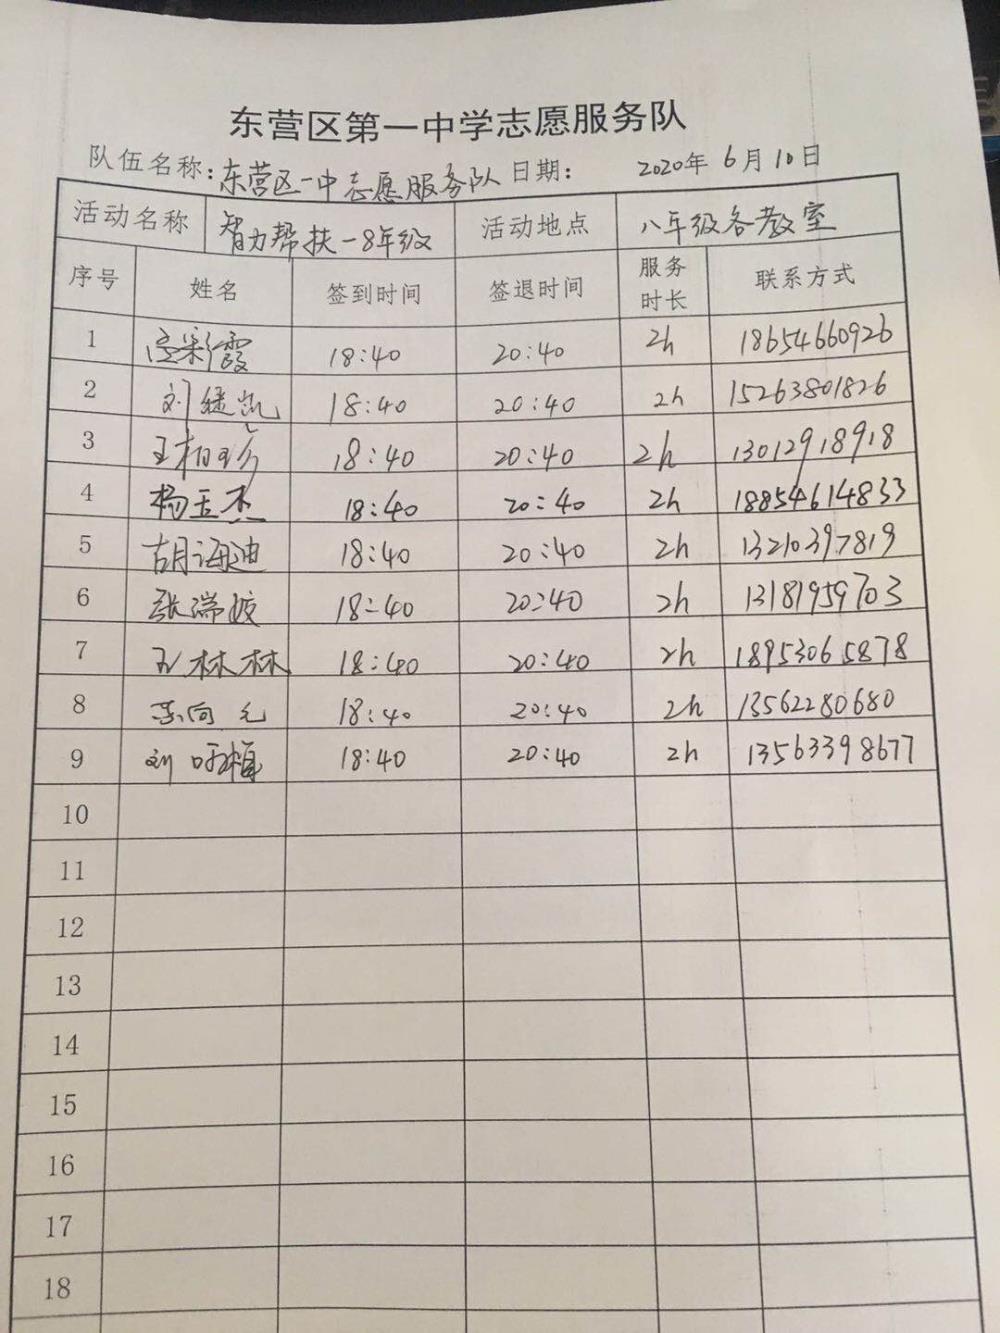 东营区第一中学志愿服务队
队伍名称:东营区一中志愿服务队 日期: 2020年 6月 10日
活动名称 智力帮扶一8年级 活动地点 八年级各教室
序号 姓名 签到时间 签退时间 服务时长 联系方式
1 彩霞 18:40 20:40 2h 18654660926
2 刘继凯 18:40 20:40 2h 15263801826
3 王柏珍 18:40 20:40 2h 13012918918
4 杨玉杰 18:40 20:40 2h 18854614833
5 胡海迪 18:40 20:40 2h 13210397819
6 张瑞姣 18:40 20:40 2h 13181959703
7 王林林 18:40 20:40 2h 18953065878
8 18:40 20:40 2h 13562280680
9 刘 18:40 20:40 2h 13563398677
10
11
12
13
14
15
16
17
18